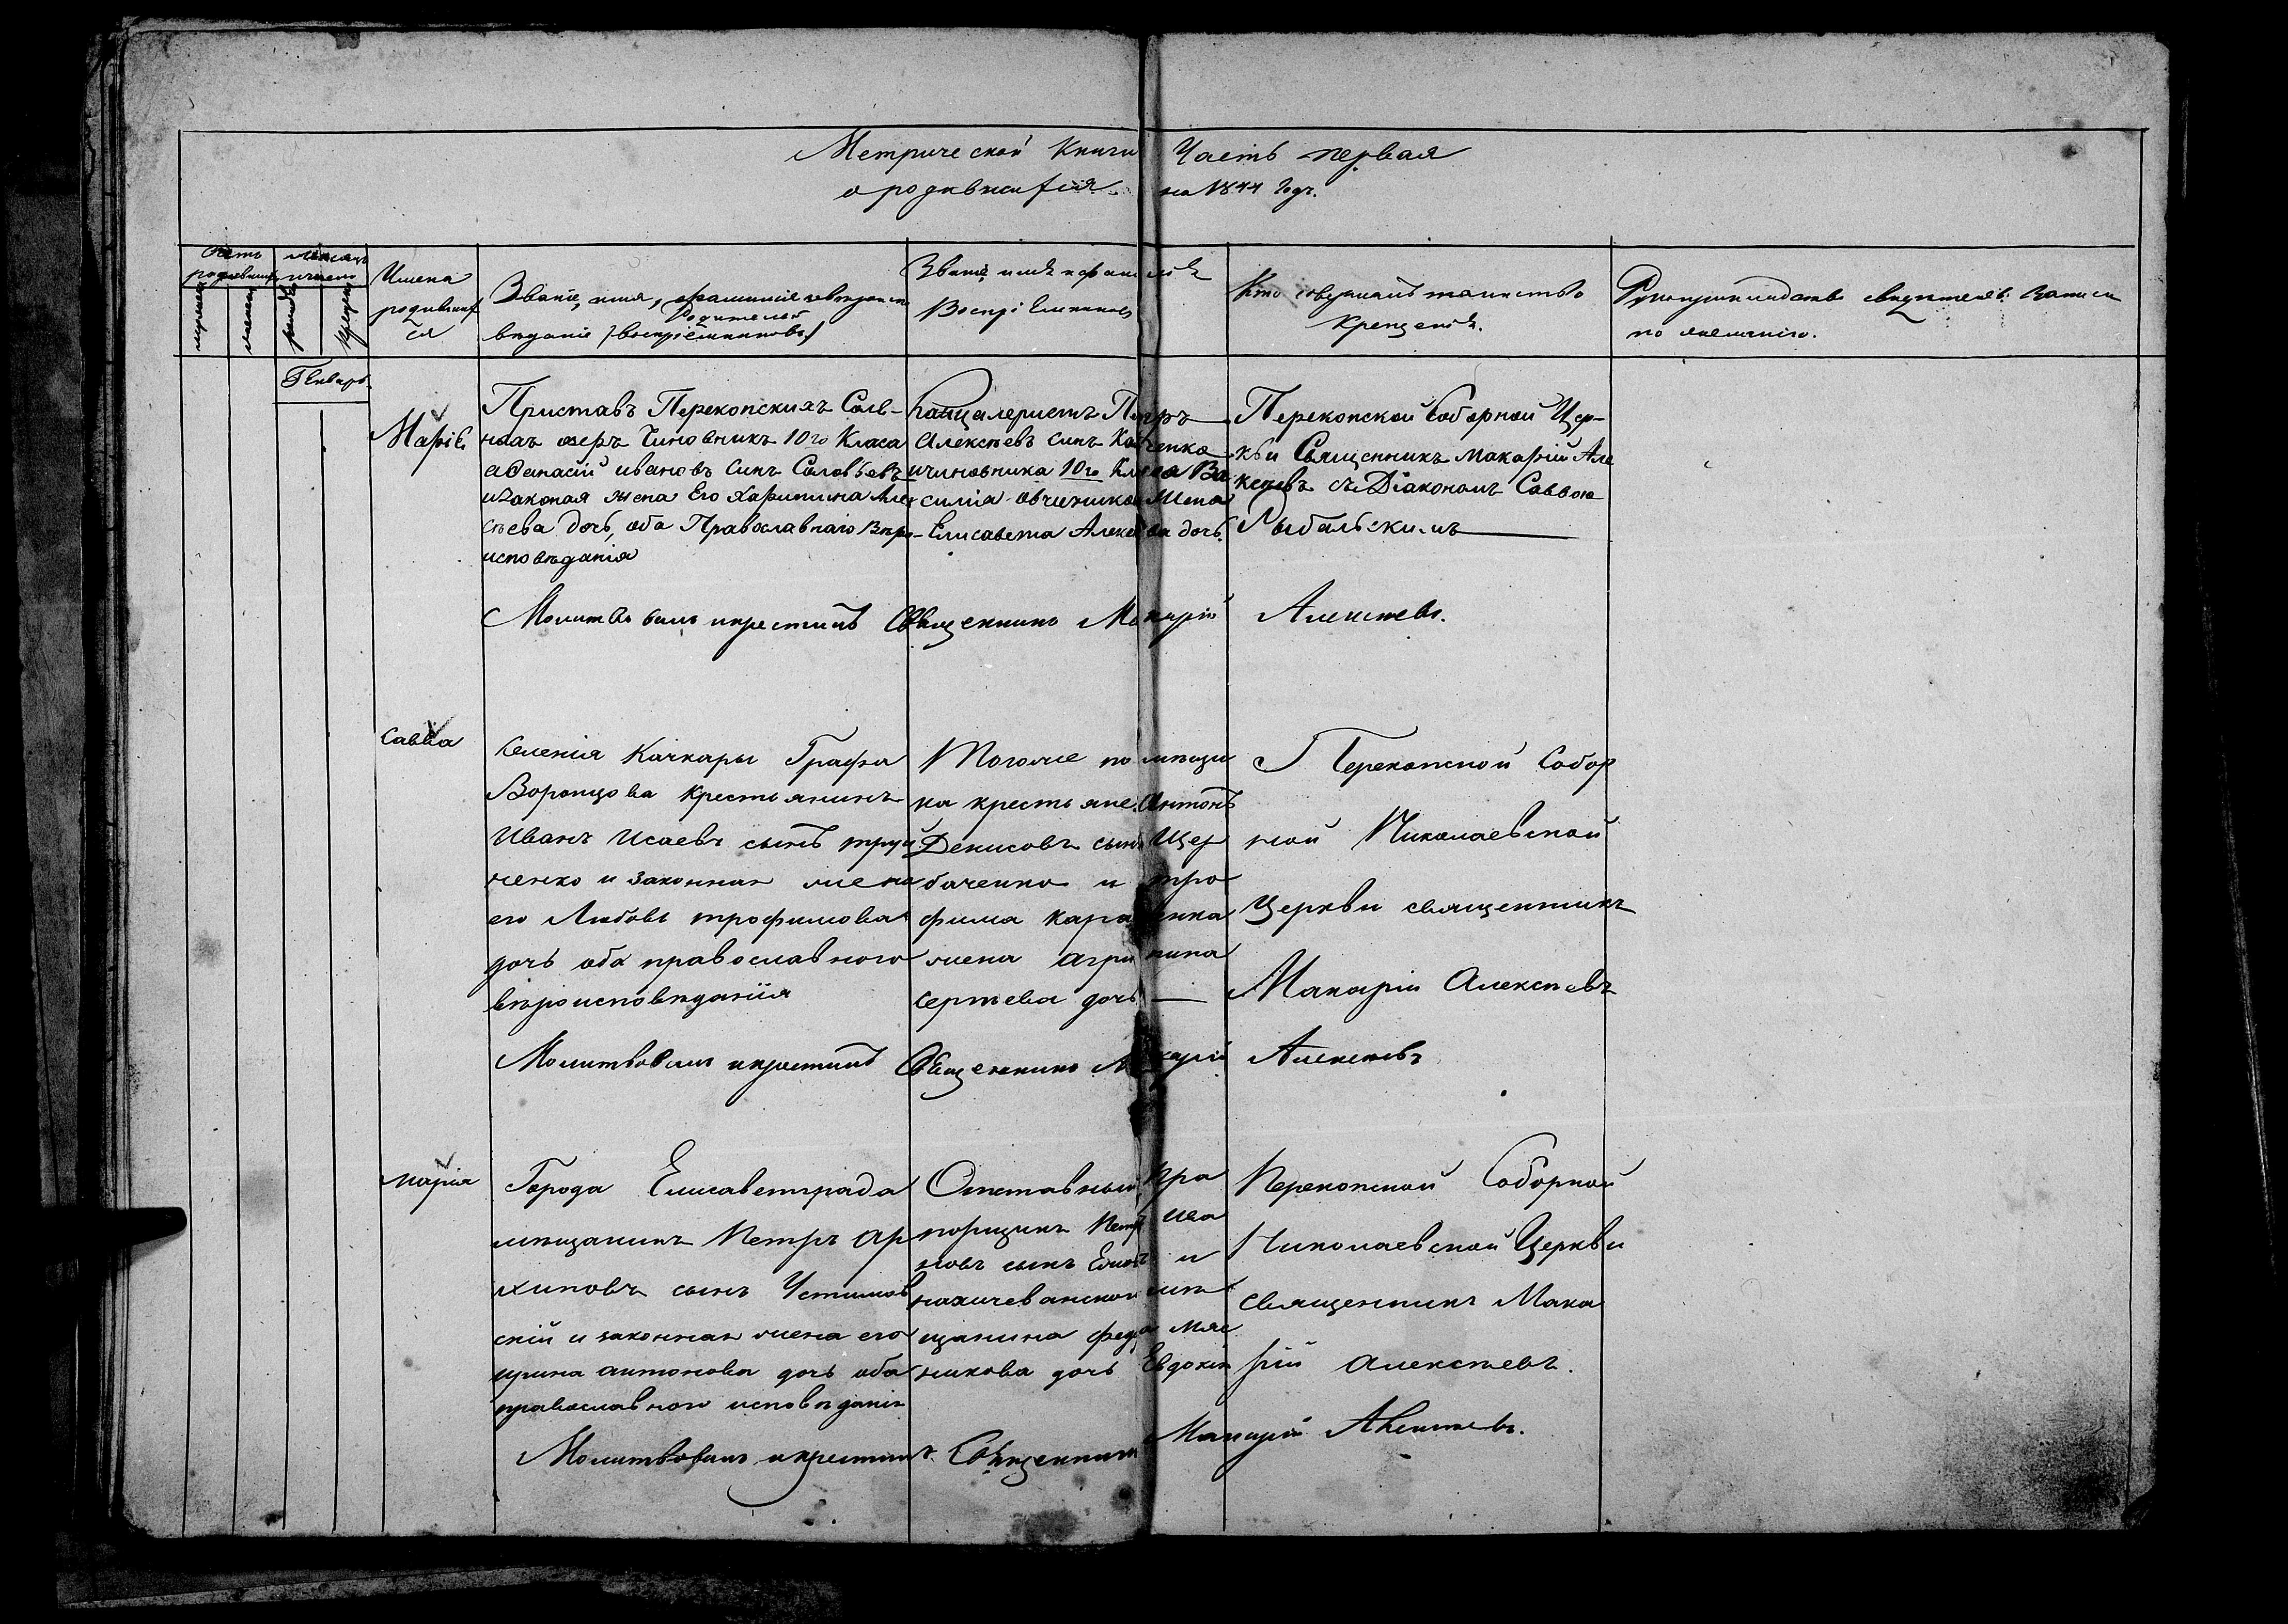 Метрической Книги Часть первая
о родившихся на 1844 Годъ.
Счетъ родившихся
Месяцъ и число
Имена родившихся
Званіе, имя, фамилія родителей
Званіе, имя и фамилія
Воспріемниковъ
Кто совершалъ таинство
крещенія.
Рукоприкладство свидетелей записи
по желанію.
Генварь
Марія
Приставъ Перекопскихъ Соля-
ныхъ озеръ Чиновникъ 10го Класа
Афанасій ивановъ Сынъ Соловьевъ
изаконая жена Его Харитина Алек
сѣева дочь, оба Православнаго Вѣро-
исповѣданія
Канцелеристъ Петръ
Алексѣевъ сынъ
ичиновника 10го Класа Ва
силія Овчиникова Жена
Елисавета Алексѣева дочь.
Перекопской Соборной Цер-
кви Священникъ Макарій Але
ксѣевъ съ Діакономъ Саввою
Рыбальскимъ
Молитвовалъ икрестилъ Священникъ Макарій Алексѣевъ.
Савва
Селенія Качкары Графа
Воронцова Крестьянинъ
Иванъ Исаевъ сынъ
ченко и законная жена
его Любовь трофимова
дочь оба православного
вѣроисповѣданія
Тогоже помѣщи
ка крестьяне Антонъ
Денисовъ сынъ Щер
баченко и тро
фима
жена агрипина
сергѣева дочь
Перекопской Собор
ной Николаевской
Церкви священникъ
Макарій Алексѣевъ
Молитвовалъ икрестилъ Священникъ Макарій Алексѣевъ
Марія
Города Елисаветграда
мѣщанинъ Петръ Ар
хиповъ сынъ Устимов
скій и законная жена его
ирина антонова дочь оба
православного исповѣданія
Отставный Пра
порщикъ Петръ ива
новъ сынъ и
нахичеванской мѣ
щанина
никова дочь Евдокія
Перекопской Соборной
Николаевской Церкви
священникъ Мака
рій алексѣевъ.
Молитвовалъ икрестилъ. Священникъ Макарій Алексѣевъ.